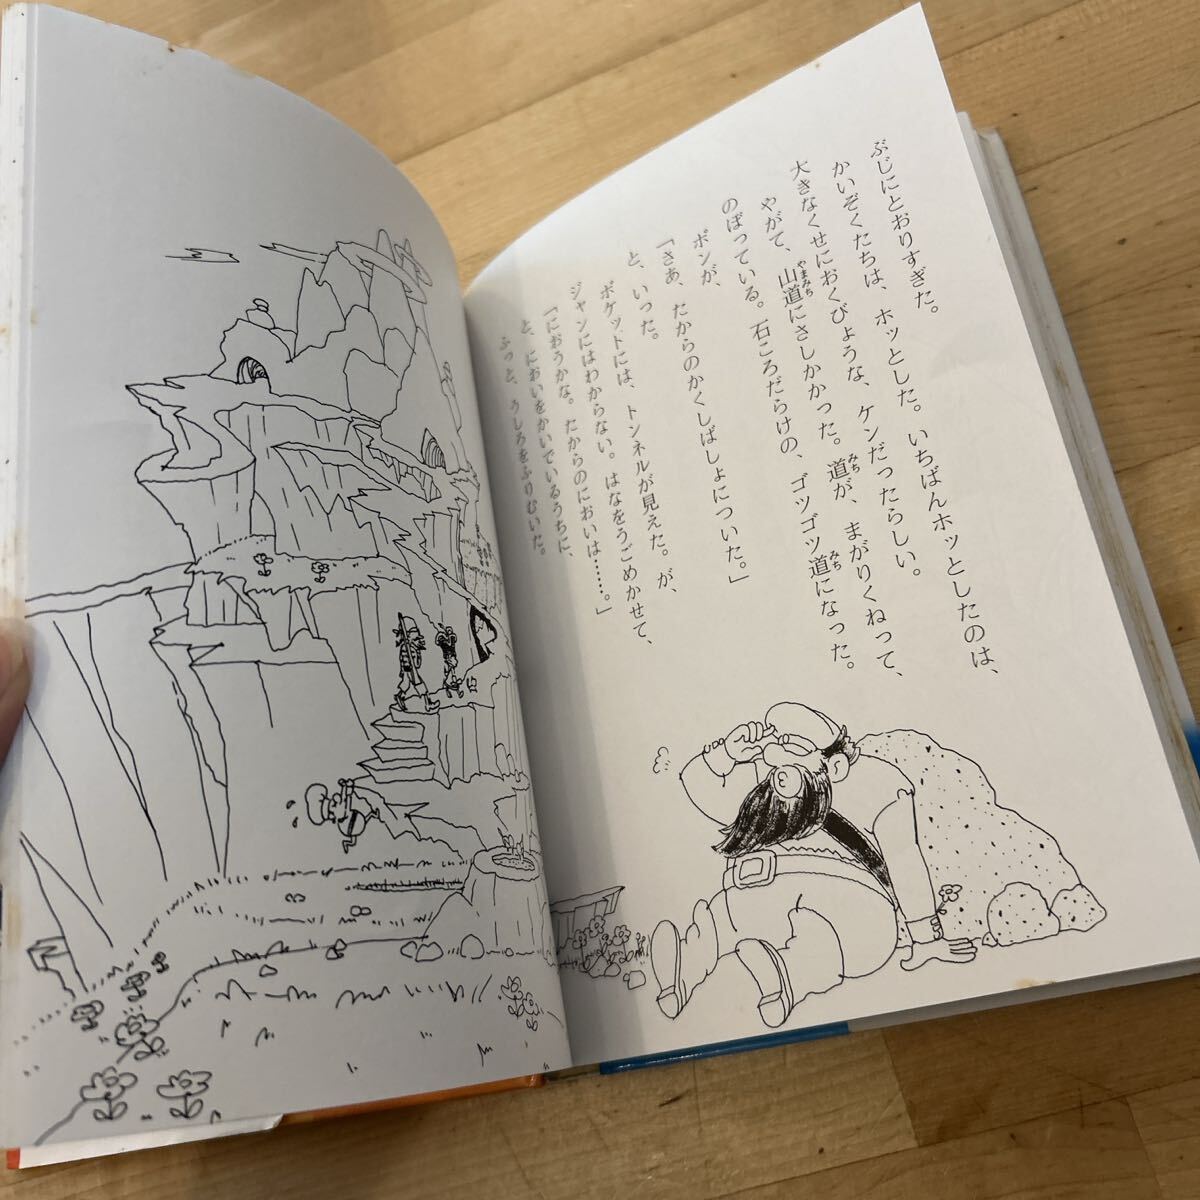 ぶじにとおりすぎた。
かいぞくたちは、ホッとした。いちばんホッとしたのは、
大きなくせにおくびょうな、ケンだったらしい。
やがて、山道にさしかかった。道が、まがりくねって、
のぼっている。石ころだらけの、ゴツゴツ道になった。
ボンが、
「さあ、たからのかくしばしょについた。」
と、いった。
ポケットには、トンネルが見えた。が、
ジャンにはわからない。はなをうごめかせて、
「におうかな。たからのにおいは……。」
と、においをかいでいるうちに、
ふっと、うしろをふりむいた。